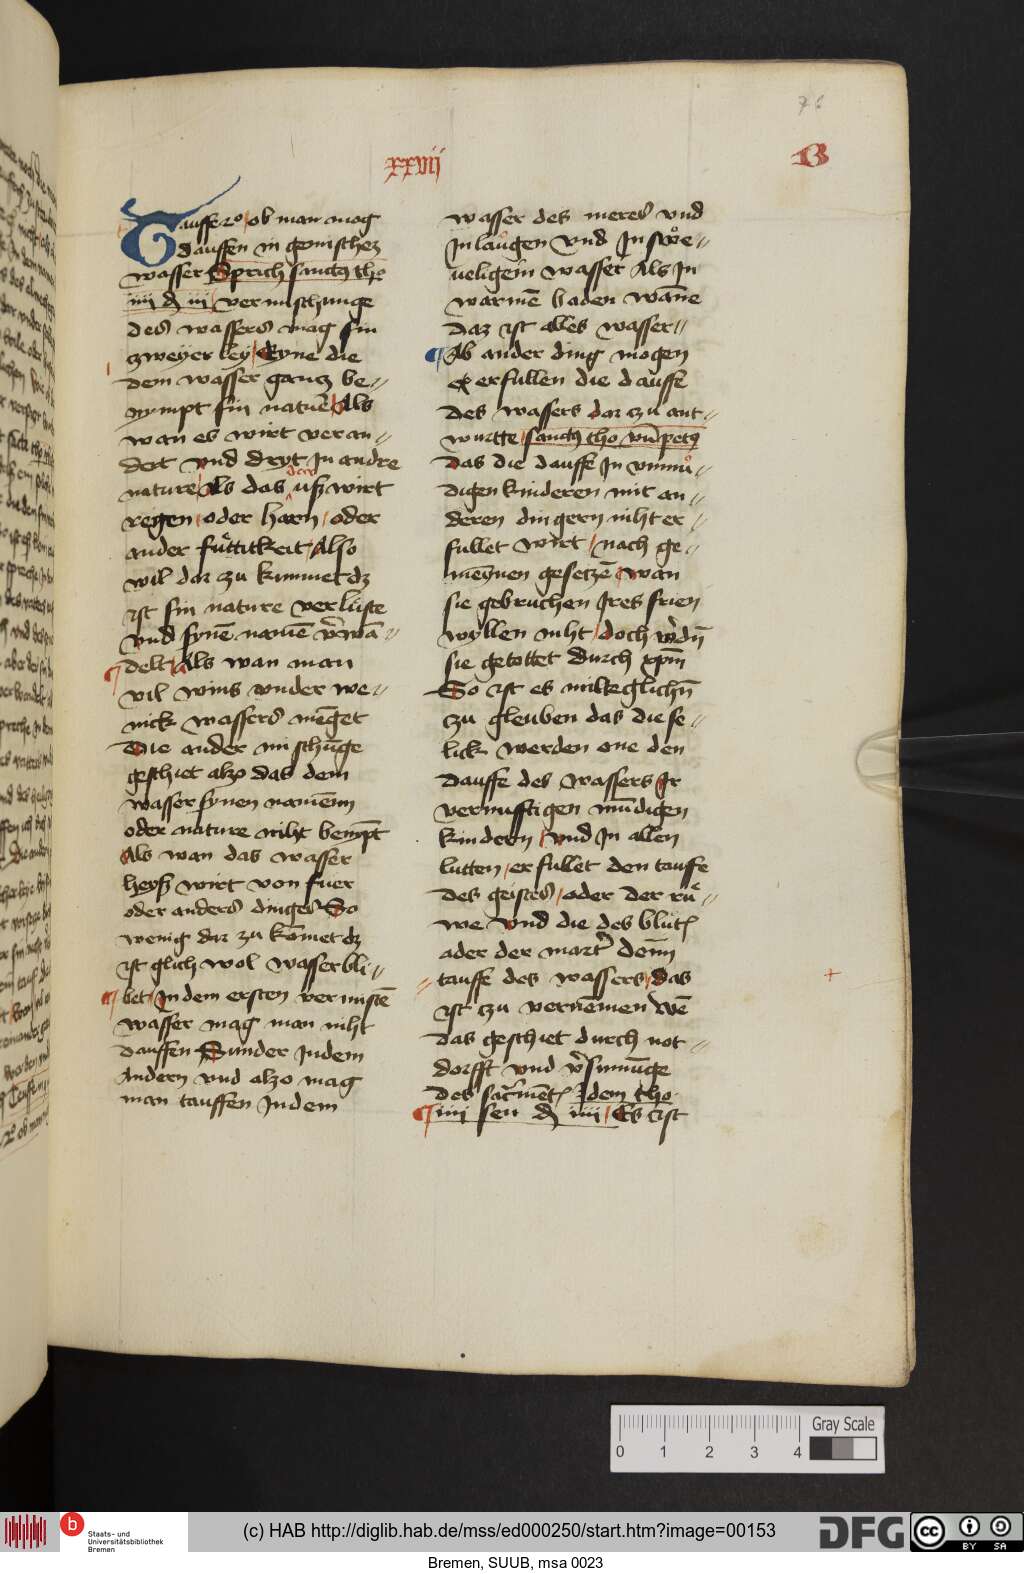 76
xxvij
B
Tauffe 2º ob man mog
dauffen in gemischez
wasser Sprich sanctꝰ tho
iiij d iij vermischunge
des wassers mag sin
zweyer ley Eyne die
dem wasser gantz be⸗
nympt sin natuͤr Als
wan es wirt veran⸗
dert vnd dryt In andre
nature Als das uß wirt
regen oder harn oder
ander fuͤttikeit Also
wil dar zu kummet dz
ist sin nature verluͤste
vnd synē namē v̄wā⸗
delt Als wan man
vil wins vnder we⸗
nick wassers mēget
Die ander mischūge
geschiet also das dem
wasser synen namēnn
oder nature niht benȳpt
Als wan das wasser
heyß wirt von fuer
oder anders dinges So
wenig dar zu kōmet dz
ist glich wol wasser bli⸗
bet In dem ersten vermistē
wasser mag man niht
dauffen Sunder Indem
Andern vnd also mag
man tauffen Indem
wasser des meres vnd
In laugen vnd In swe⸗
ueligein wasser Als In
warmē baden wāne
daz ist alles wasser
Ab ander ding mogen
erfullen die dauffe
des wassers dar zu ant⸗
wurtte sanctꝰ tho vn̄ petꝰ
das die dauffe In vnmuͦ⸗
digen kinderen mit an⸗
deren dingern niht er⸗
fullet wirt nach ge⸗
meynen gesetzē wan
sie gebruchen Ires frien
wyllen niht doch w̄dn̄
sie getottet durch xpm̄
So ist es milteglichn̄
zu gleuben das die se⸗
lick werden one den
dauffe des wassers Ir
vernufftigen mūdigen
kindern vnd In allen
lutten erfullet den tauffe
des geistes oder der ruͤ⸗
we vnd die des bluts
ader der mart̄ denn
tauffe des wassers das
ist zu vernēmen Wē
das geschiet durch not⸗
dorfft vnd v̄sumūge
des sac̄mēts Idem tho
iiij sen d iiij Es ist
0 1 2 3 4
Gray Scale
b
Staats- und
Universitätsbibliothek
Bremen
(c) HAB http://diglib.hab.de/mss/ed000250/start.htm?image=00153
DFG
cc BY SA
Bremen, SUUB, msa 0023